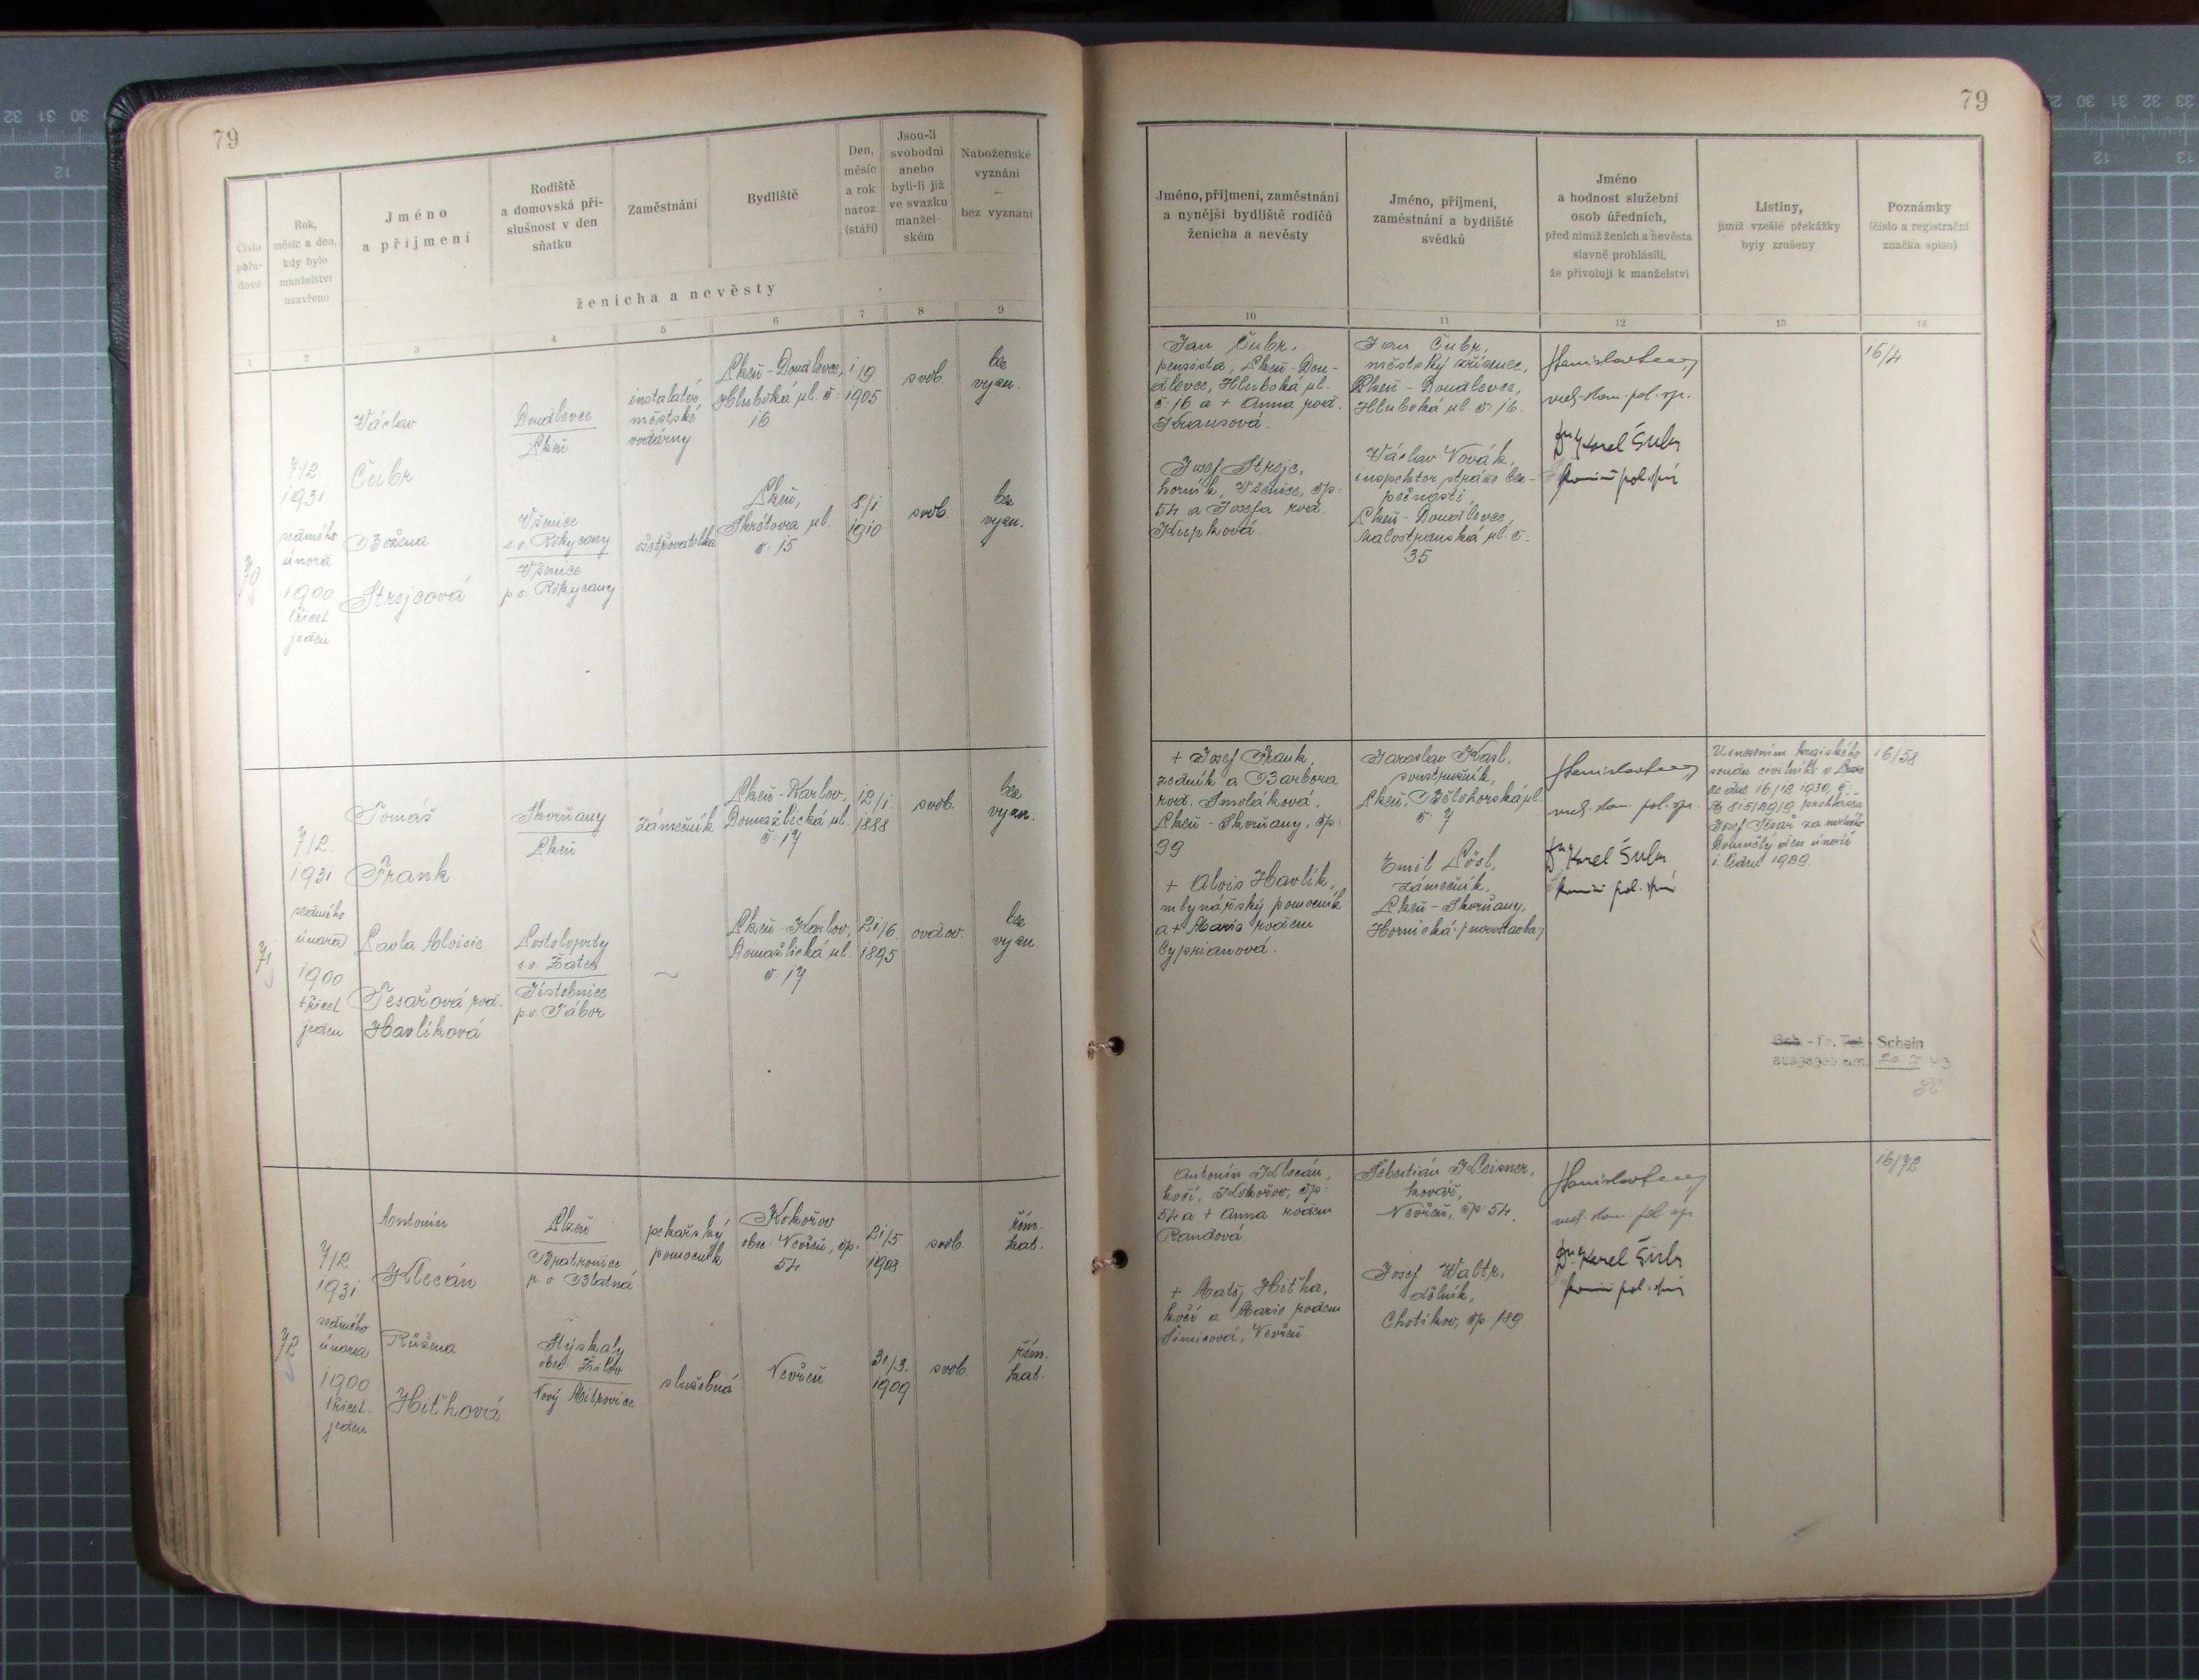 79
Číslo
pořa-
dové
Rok,
měsíc a den,
kdy bylo
manželství
uzavřeno
Jméno
a příjmení
Rodiště
a domovská pří-
slušnost v den
sňatku
Zaměstnání
Bydliště
Den,
měsíc
a rok
naroz.
(stáří)
Jsou-li
svobodni
anebo
byli-li již
ve svazku
manžel-
ském
Náboženské
vyznání
—
bez vyznání
ženicha a nevěsty
1 2 3 4 5 6 7 8 9
70
7/2
1931
sedmého
února
1900
třicet
jeden
Václav
Čubr
Doudlevce
Plzeň
instalatér
městské
vodárny
Plzeň - Doudlevce,
Hluboká ul. č.
16
1/9
1905
svob.
bez
vyzn.
Božena
Strejcová
Všenice
s.o. Rokycany
Všenice
p.o. Rokycany
ošetřovatelka
Plzeň,
Škrétova ul.
č. 15
8/1
1910
svob.
bez
vyzn.
71
7/2
1931
sedmého
února
1900
třicet
jeden
Tomáš
Frank
Skvrňany
Plzeň
zámečník
Plzeň - Karlov,
Domažlická ul.
č. 17
12/1
1888
svob.
bez
vyzn.
Pavla Aloisie
Tesařová roz.
Havlíková
Postoloprty
s.o. Žatec
Jistebnice
p.o. Tábor
~
Plzeň - Karlov,
Domažlická ul.
č. 17
21/6
1895
ovdov.
bez
vyzn.
72
7/2
1931
sedmého
února
1900
třicet
jeden
Antonín
Klecán
Plzeň
Bratronice
p.o. Blatná
pekařský
pomocník
Kokořov
obec Nevřeň, čp.
54
21/5
1908
svob.
řím.
kat.
Růžena
Hiťhová
Hýskaly
obec Žilov
Nový Mitrovice
služebná
Nevřeň
31/3.
1909
svob.
řím.
kat.
79
Jméno, příjmení, zaměstnání
a nynější bydliště rodičů
ženicha a nevěsty
Jméno, příjmení,
zaměstnání a bydliště
svědků
Jméno
a hodnost služební
osob úředních,
před nimiž ženich a nevěsta
slavně prohlásili,
že přivolují k manželství
Listiny,
jimiž vzešlé překážky
byly zrušeny
Poznámky
(číslo a registrační
značka spisu)
10 11 12 13 14
Jan Čubr,
pensista, Plzeň - Dou-
dlevce, Hluboká ul.
č. 16 a + Anna roz.
Krausová.
Josef Strejc,
horník, Všenice, čp.
54 a Josefa roz.
Kupková
Jan Čubr,
městský zřízenec,
Plzeň - Doudlevce,
Hluboká ul. č. 16.
Václav Novák,
inspektor stráže bez-
pečnosti,
Plzeň - Doudlevce,
Malostranská ul. č.
35
Karel Šubr
16/4
+ Josef Frank,
zedník a Barbora
roz. Smoláková,
Plzeň - Skvrňany, čp.
99
+ Alois Havlík,
mlynářský pomocník
a + Marie rodem
Cyprianová.
Jaroslav Kasl,
soustružník,
Plzeň, Bělohorská ul.
č. 7
Emil Lösl,
zámečník,
Plzeň - Skvrňany,
Hornická /novostavba/
Karel Šubr
Usnesením krajského
soudu civilního v Praze
ze dne 16/12 1930, č.
prohlášen
Josef Tesař za mrtvého
16/58
Geb - Tr. Tot - Schein
ausgegeben am
Antonín Klecán,
kočí, Kokořov, čp.
54 a + Anna rodem
Randová.
+ Matěj Hiťha,
kočí a Marie rodem
Šimicová, Nevřeň
Šebestián Kleisner,
kovář,
Nevřeň, čp. 54.
Josef Waltr,
dělník,
Chotíkov, čp. 189
Karel Šubr
16/72